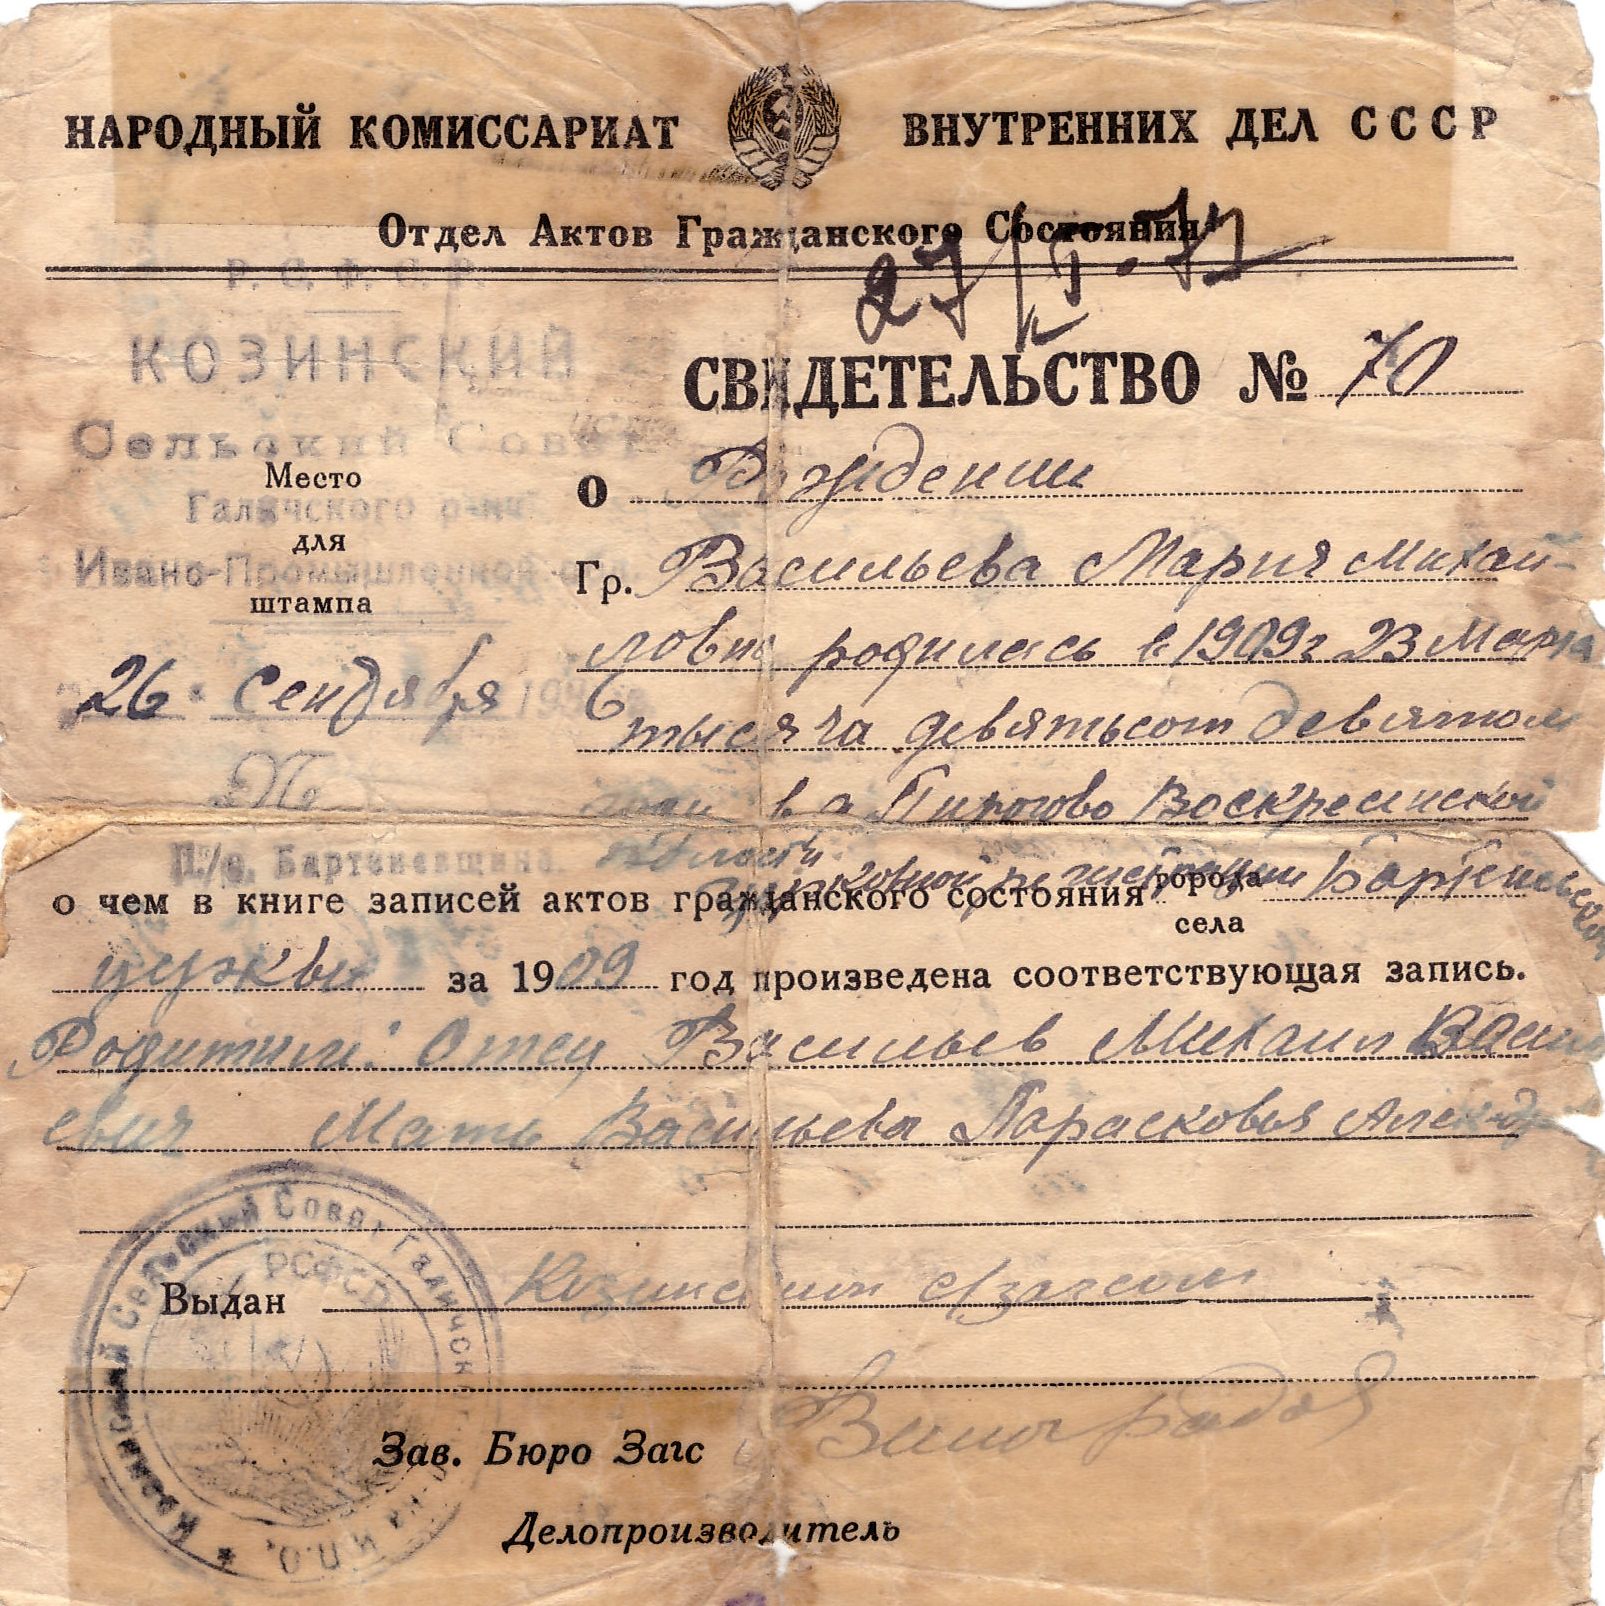 НАРОДНЫЙ КОМИССАРИАТ ВНУТРЕННИХ ДЕЛ СССР
Отдел Актов Гражданского Состояния
27/V-71
Р.С.Ф.С.Р.
КОЗИНСКИЙ
Сельский Совет
Галичского р-на
Ивано-Промышленной обл.
Место
для
штампа
26 Сентября 19
П/о. Бартеневщина
СВИДЕТЕЛЬСТВО № 70
О Рождении
Гр. Васильева Мария Михай-
ловна родилась в 1909 г 23 Марта
тысяча девятьсот девятом
в д Пирогово Воскресинской
волости
о чем в книге записей актов гражданского состояния города
села
церковной регистрации
цержвы за 1909 год произведена соответствующая запись.
Родители: Отец Васильев Михаил Васил
евич Мать Васильева Парасковья Александ
Выдан Козинским с/загсом
Зав. Бюро Загс Виноградов
Делопроизводитель
Козинский Сельский Совет Галичск р-на И.П.О.
РСФСР